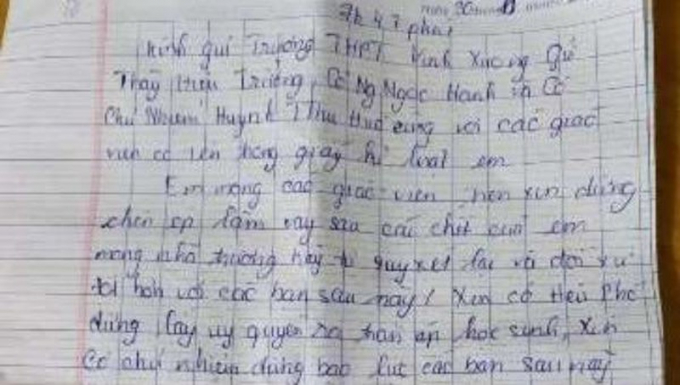 7h 47 phút
Kính gửi Trường THPT Vĩnh Xương Gửi
Thầy Hiệu Trưởng, Cô Ng Ngọc Hạnh và Cô
Chủ Nhiệm Huỳnh Thu Huệ cùng với các giáo
viên có tên trong giấy kỉ luật em
Em mong các giáo viên nên xin dừng
chèn ép lắm vậy sau cái chết của em
mong nhà trường hãy tự quyết lại và đối xử
tốt hơn với các bạn sau này! Xin cô Hiệu Phó
dừng lấy uy quyền ra trấn áp học sinh, xin
Cô chủ nhiệm dừng bạo lực các bạn sau này